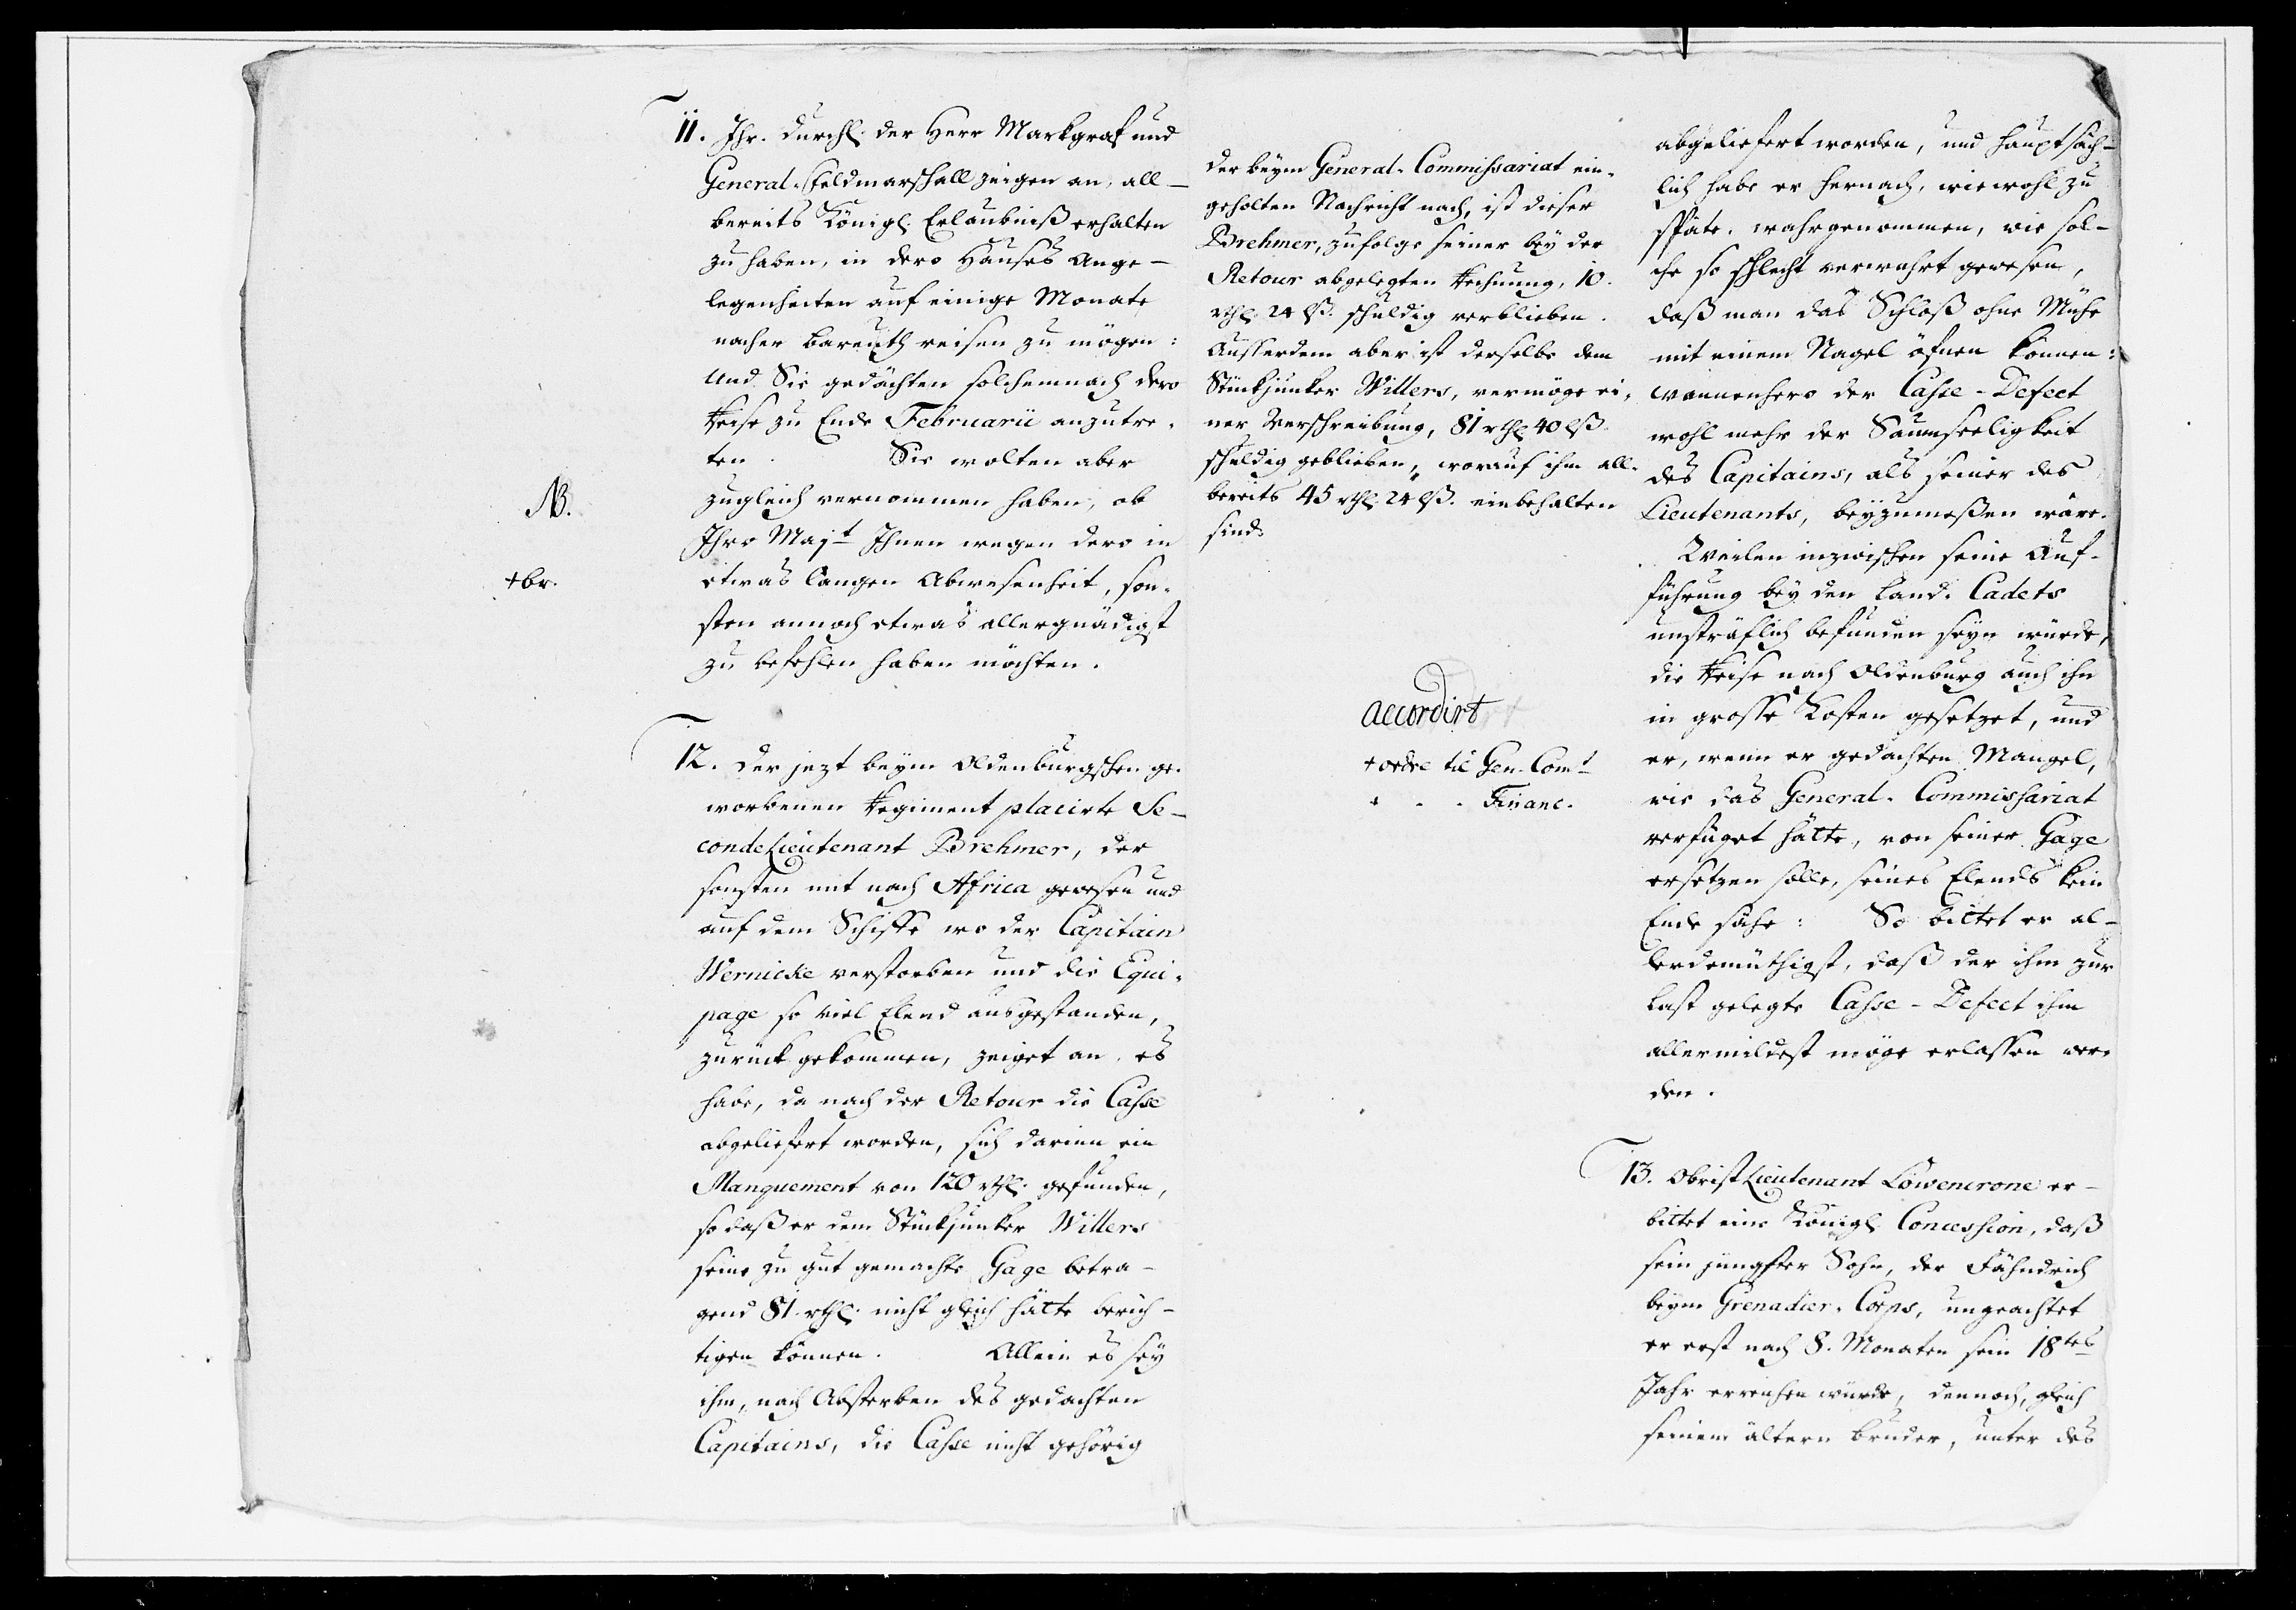 11. Ihr. Durchl. der Herr Markgraf und
General-Feldmarschall zeigen an, all-
bereits Königl. Erlaubniß erhalten
zu haben, in dero Hauses Ange-
legenheiten auf einige Monate
nacher Bareuth reisen zu mögen:
Und Sie gedächten solchemnach dero
Reise zu Ende Februarii anzutre-
ten. Sie wolten aber
NB.
zugleich vernommen haben, ob
Ihro Majt Ihnen wegen dero in
+br.
etwas langen Abwesenheit, son-
sten annoch etwas allergnädigst
zu befehlen haben möchten.
12. Der jezt beym Oldenburgschen ge-
worbenen Regiment placirte Se-
conde Lieutenant Brehmer, der
sonsten mit nach Africa gewesen und
auf dem Schiffe wo der Capitain
Wernicke verstorben und die Equi-
page so viel Elend ausgestanden,
zurück gekommen, zeiget an, es
habe, da nach der Retour die Casse
abgeliefert worden, sich darinn ein
Manquement von 120 rthl. gefunden,
so daß er dem Stückjunker Willers
seine zu gut gemachte Gage betra-
gend 81. rthl. nicht gleich hätte berich-
tigen können. Allein es sey
ihm, nach Absterben des gedachten
Capitains, die Casse nicht gehörig
der beym General-Commissariat ein-
geholten Nachricht nach, ist dieser
Brehmer, zufolge seiner bey der
Retour abgelegten Rechnung, 10.
rthl. 24 lß. schuldig verblieben.
Ausserdem aber ist derselbe dem
Stückjunker Willers, vermöge ei-
ner Verschreibung, 81 rthl. 40 lß
schuldig geblieben, worauf ihm all-
bereits 45 rthl. 24 lß. einbehalten
sind.
accordirt
+ ordre til Gen. Comt
- - - Financ.
abgeliefert worden, und hauptsäch-
lich habe er hernach, wiewohl zu
späte, wahrgenommen, wie sol-
che so schlecht verwahrt gewesen,
daß man das Schloß ohne Mühe
mit einem Nagel öfnen können:
wannenhero der Casse-Defect
wohl mehr der Saumseeligkeit
des Capitains, als seiner des
Lieutenants, beyzumeßen wäre.
Weilen inzwischen seine Auf-
führung bey den Land-Cadets
unsträflich befunden seyn würde,
die Reise nach Oldenburg auch ihn
in grosse Kosten gesetzet, und
er, wenn er gedachten Mangel,
wie das General-Commissariat
verfüget hätte, von seiner Gage
ersetzen solle, seines Elends kein
Ende sähe: So bittet er al-
lerdemüthigst, daß der ihm zur
Last gelegte Casse-Defect ihm
allermildest möge erlassen wer-
den.
13. Obrist Lieutenant Löwencrone er-
bittet eine Königl. Concession, daß
sein jüngster Sohn, der Fähndrich
beym Grenadier-Corps, ungeachtet
er erst nach 8. Monaten sein 18tes
Jahr erreichen würde, dennoch, gleich
seinem ältern Bruder, unter des